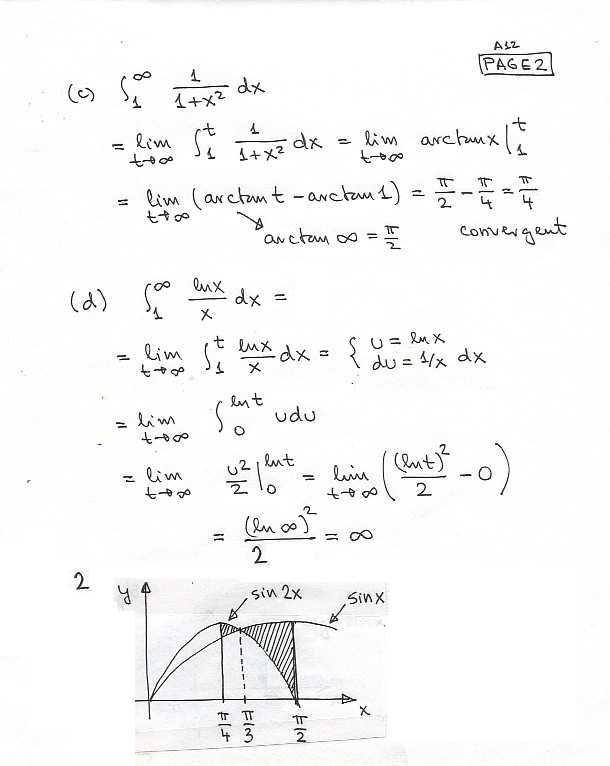 A12
PAGE 2
(c) ∫₁^∞ 1/(1+x²) dx
= lim_{t→∞} ∫₁^t 1/(1+x²) dx = lim_{t→∞} arctanx |₁^t
= lim_{t→∞} (arctan t − arctan 1) = π/2 − π/4 = π/4
arctan ∞ = π/2 convergent
(d) ∫₁^∞ lnx/x dx =
= lim_{t→∞} ∫₁^t lnx/x dx = { u = ln x
du = 1/x dx
= lim_{t→∞} ∫₀^{ln t} u du
= lim_{t→∞} u²/2 |₀^{ln t} = lim_{t→∞} ((ln t)²/2 − 0)
= (ln ∞)²/2 = ∞
2
y sin 2x sin x
x
π/4 π/3 π/2